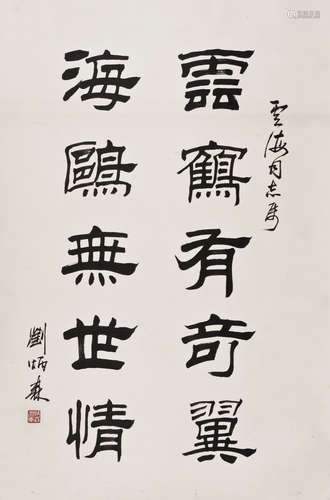 雲海同志屬
雲鶴有奇翼
海鷗無世情
劉炳森